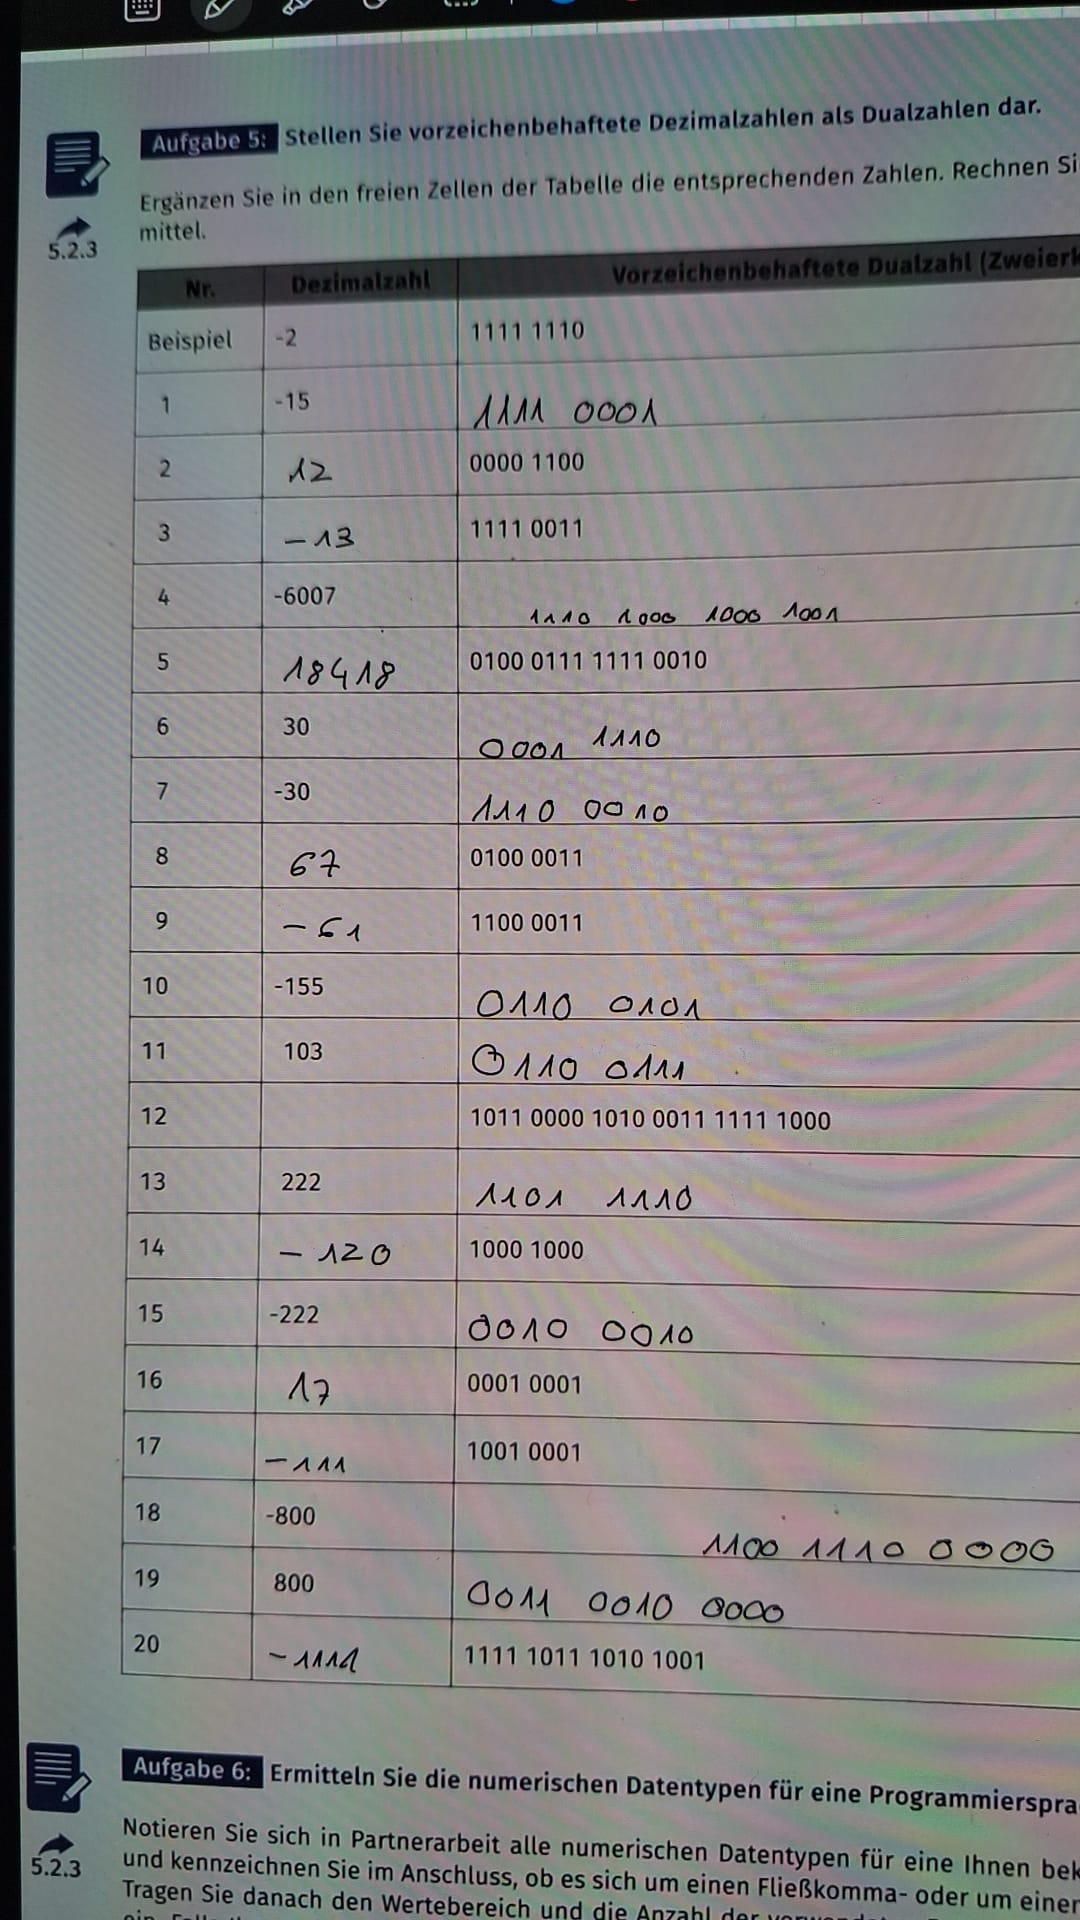 Aufgabe 5: Stellen Sie vorzeichenbehaftete Dezimalzahlen als Dualzahlen dar.
Ergänzen Sie in den freien Zellen der Tabelle die entsprechenden Zahlen. Rechnen Si
mittel.
5.2.3
Nr. Dezimalzahl Vorzeichenbehaftete Dualzahl (Zweierk
Beispiel -2 1111 1110
1 -15 1111 0001
2 12 0000 1100
3 -13 1111 0011
4 -6007 1110 1000 1000 1001
5 18418 0100 0111 1111 0010
6 30 0001 1110
7 -30 1110 0010
8 67 0100 0011
9 -61 1100 0011
10 -155 0110 0101
11 103 0110 0111
12 1011 0000 1010 0011 1111 1000
13 222 1101 1110
14 -120 1000 1000
15 -222 0010 0010
16 17 0001 0001
17 -111 1001 0001
18 -800 1100 1110 0000
19 800 0011 0010 0000
20 -1111 1111 1011 1010 1001
Aufgabe 6: Ermitteln Sie die numerischen Datentypen für eine Programmierspra
Notieren Sie sich in Partnerarbeit alle numerischen Datentypen für eine Ihnen bek
5.2.3
und kennzeichnen Sie im Anschluss, ob es sich um einen Fließkomma- oder um einen
Tragen Sie danach den Wertebereich und die Anzahl der